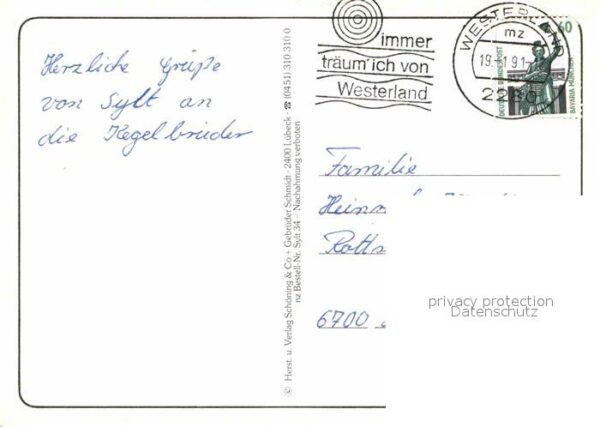 Herzliche Grüße
von Sylt an
die Kegelbrüder
immer
träum' ich von
Westerland
WESTERLAND
mz
19.
91
2280
60
DEUTSCHE BUNDESPOST
BAVARIA MÜNCHEN
© Herst. u. Verlag Schöning & Co + Gebrüder Schmidt · 2400 Lübeck · ☎ (0451) 310 310 0
nz Bestell-Nr. Sylt 34 – Nachahmung verboten
Familie
6700
privacy protection
Datenschutz